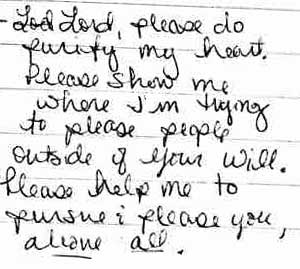 - God Lord, please do
purify my heart.
Please show me
where I'm trying
to please people
outside of your will.
Please help me to
pursue & please you,
above all.